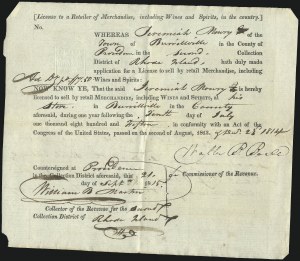 [License to a Retailer of Merchandize, including Wines and Spirits, in the country.]
No.
WHEREAS Jeremiah Henry
of the
Town of Burrillville in the County of
in the Second Collection
District of Rhode Island, hath duly made
application for a License to sell by retail Merchandize, including
Wines and Spirits.
NOW KNOW YE, That the said Jeremiah Henry is hereby
licensed to sell by retail Merchandize, including Wines and Spirits, at his
Store in Burrillville in the County
aforesaid, during one year following the Tenth day of July
one thousand eight hundred and fifteen, in conformity with an Act of the
Congress of the United States, passed on the second of August, 1813, & Decr 23 1814
Countersigned at Providence
in the Collection District aforesaid, this 21.
day of Sept. 1815.
Commissioner of the Revenue.
William B. Martin
Collector of the Revenue for the Second
Collection District of Rhode Island